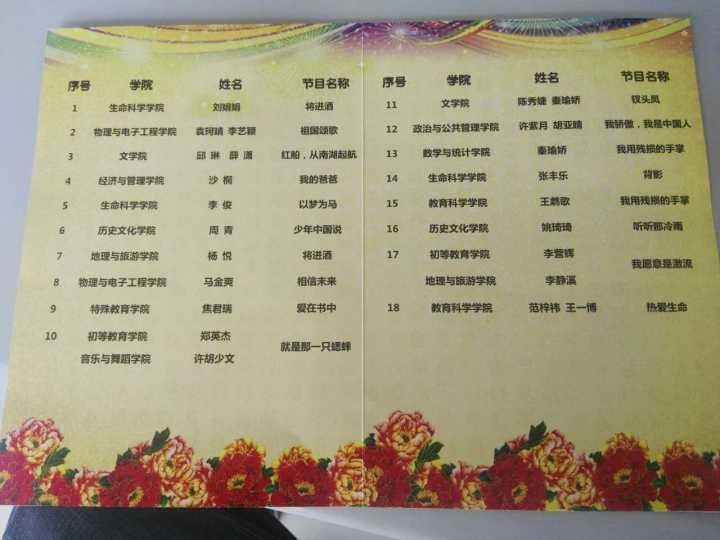 序号 学院 姓名 节目名称
1 生命科学学院 刘娟娟 将进酒
2 物理与电子工程学院 袁珂靖 李艺颖 祖国颂歌
3 文学院 邱琳 薛潇 红船，从南湖起航
4 经济与管理学院 沙桐 我的爸爸
5 生命科学学院 李俊 以梦为马
6 历史文化学院 周青 少年中国说
7 地理与旅游学院 杨悦 将进酒
8 物理与电子工程学院 马金爽 相信未来
9 特殊教育学院 焦君瑞 爱在书中
10 初等教育学院 郑英杰
就是那一只蟋蟀
音乐与舞蹈学院 许胡少文
序号 学院 姓名 节目名称
11 文学院 陈秀婕 秦瑜娇 钗头凤
12 政治与公共管理学院 许紫月 胡亚婻 我骄傲，我是中国人
13 数学与统计学院 秦瑜娇 我用残损的手掌
14 生命科学学院 张丰乐 背影
15 教育科学学院 王鹤歌 我用残损的手掌
16 历史文化学院 姚琦琦 听听那冷雨
17 初等教育学院 李营辉
我愿意是激流
地理与旅游学院 李静溪
18 教育科学学院 范梓祎 王一博 热爱生命